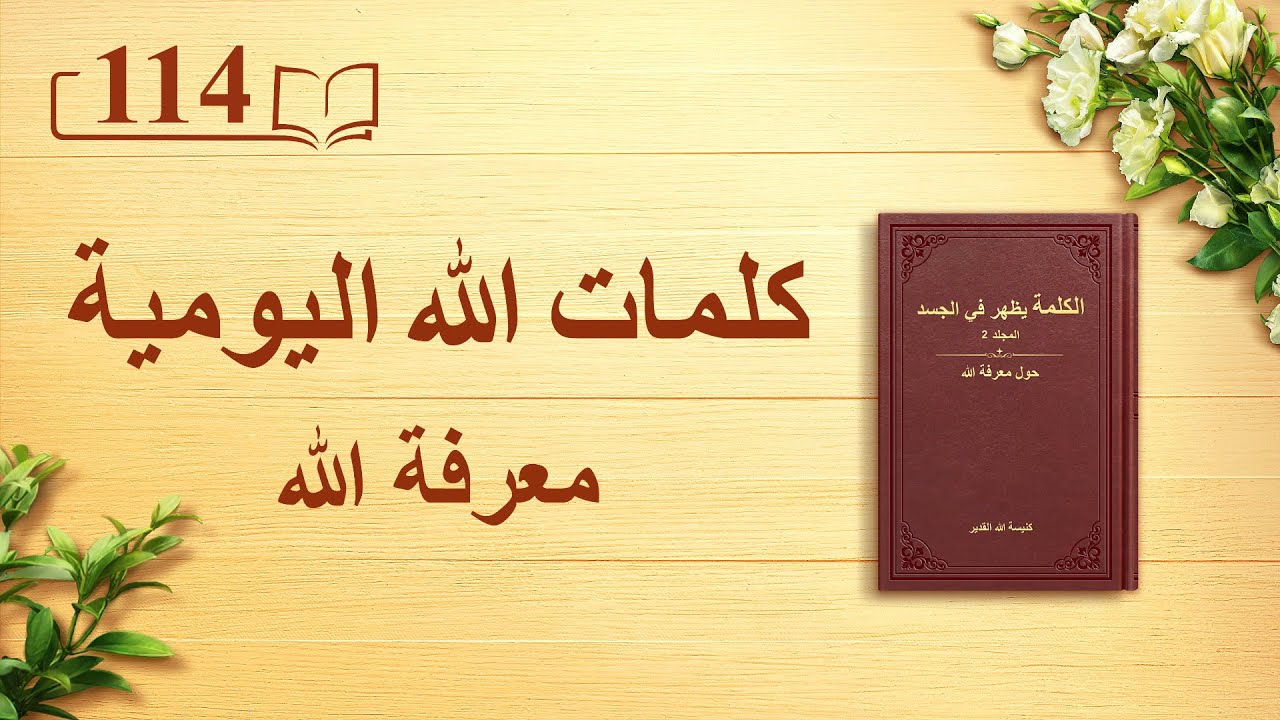 114
كلمات الله اليومية
معرفة الله
الكلمة يظهر في الجسد
المجلد 2
حول معرفة الله
كنيسة الله القدير